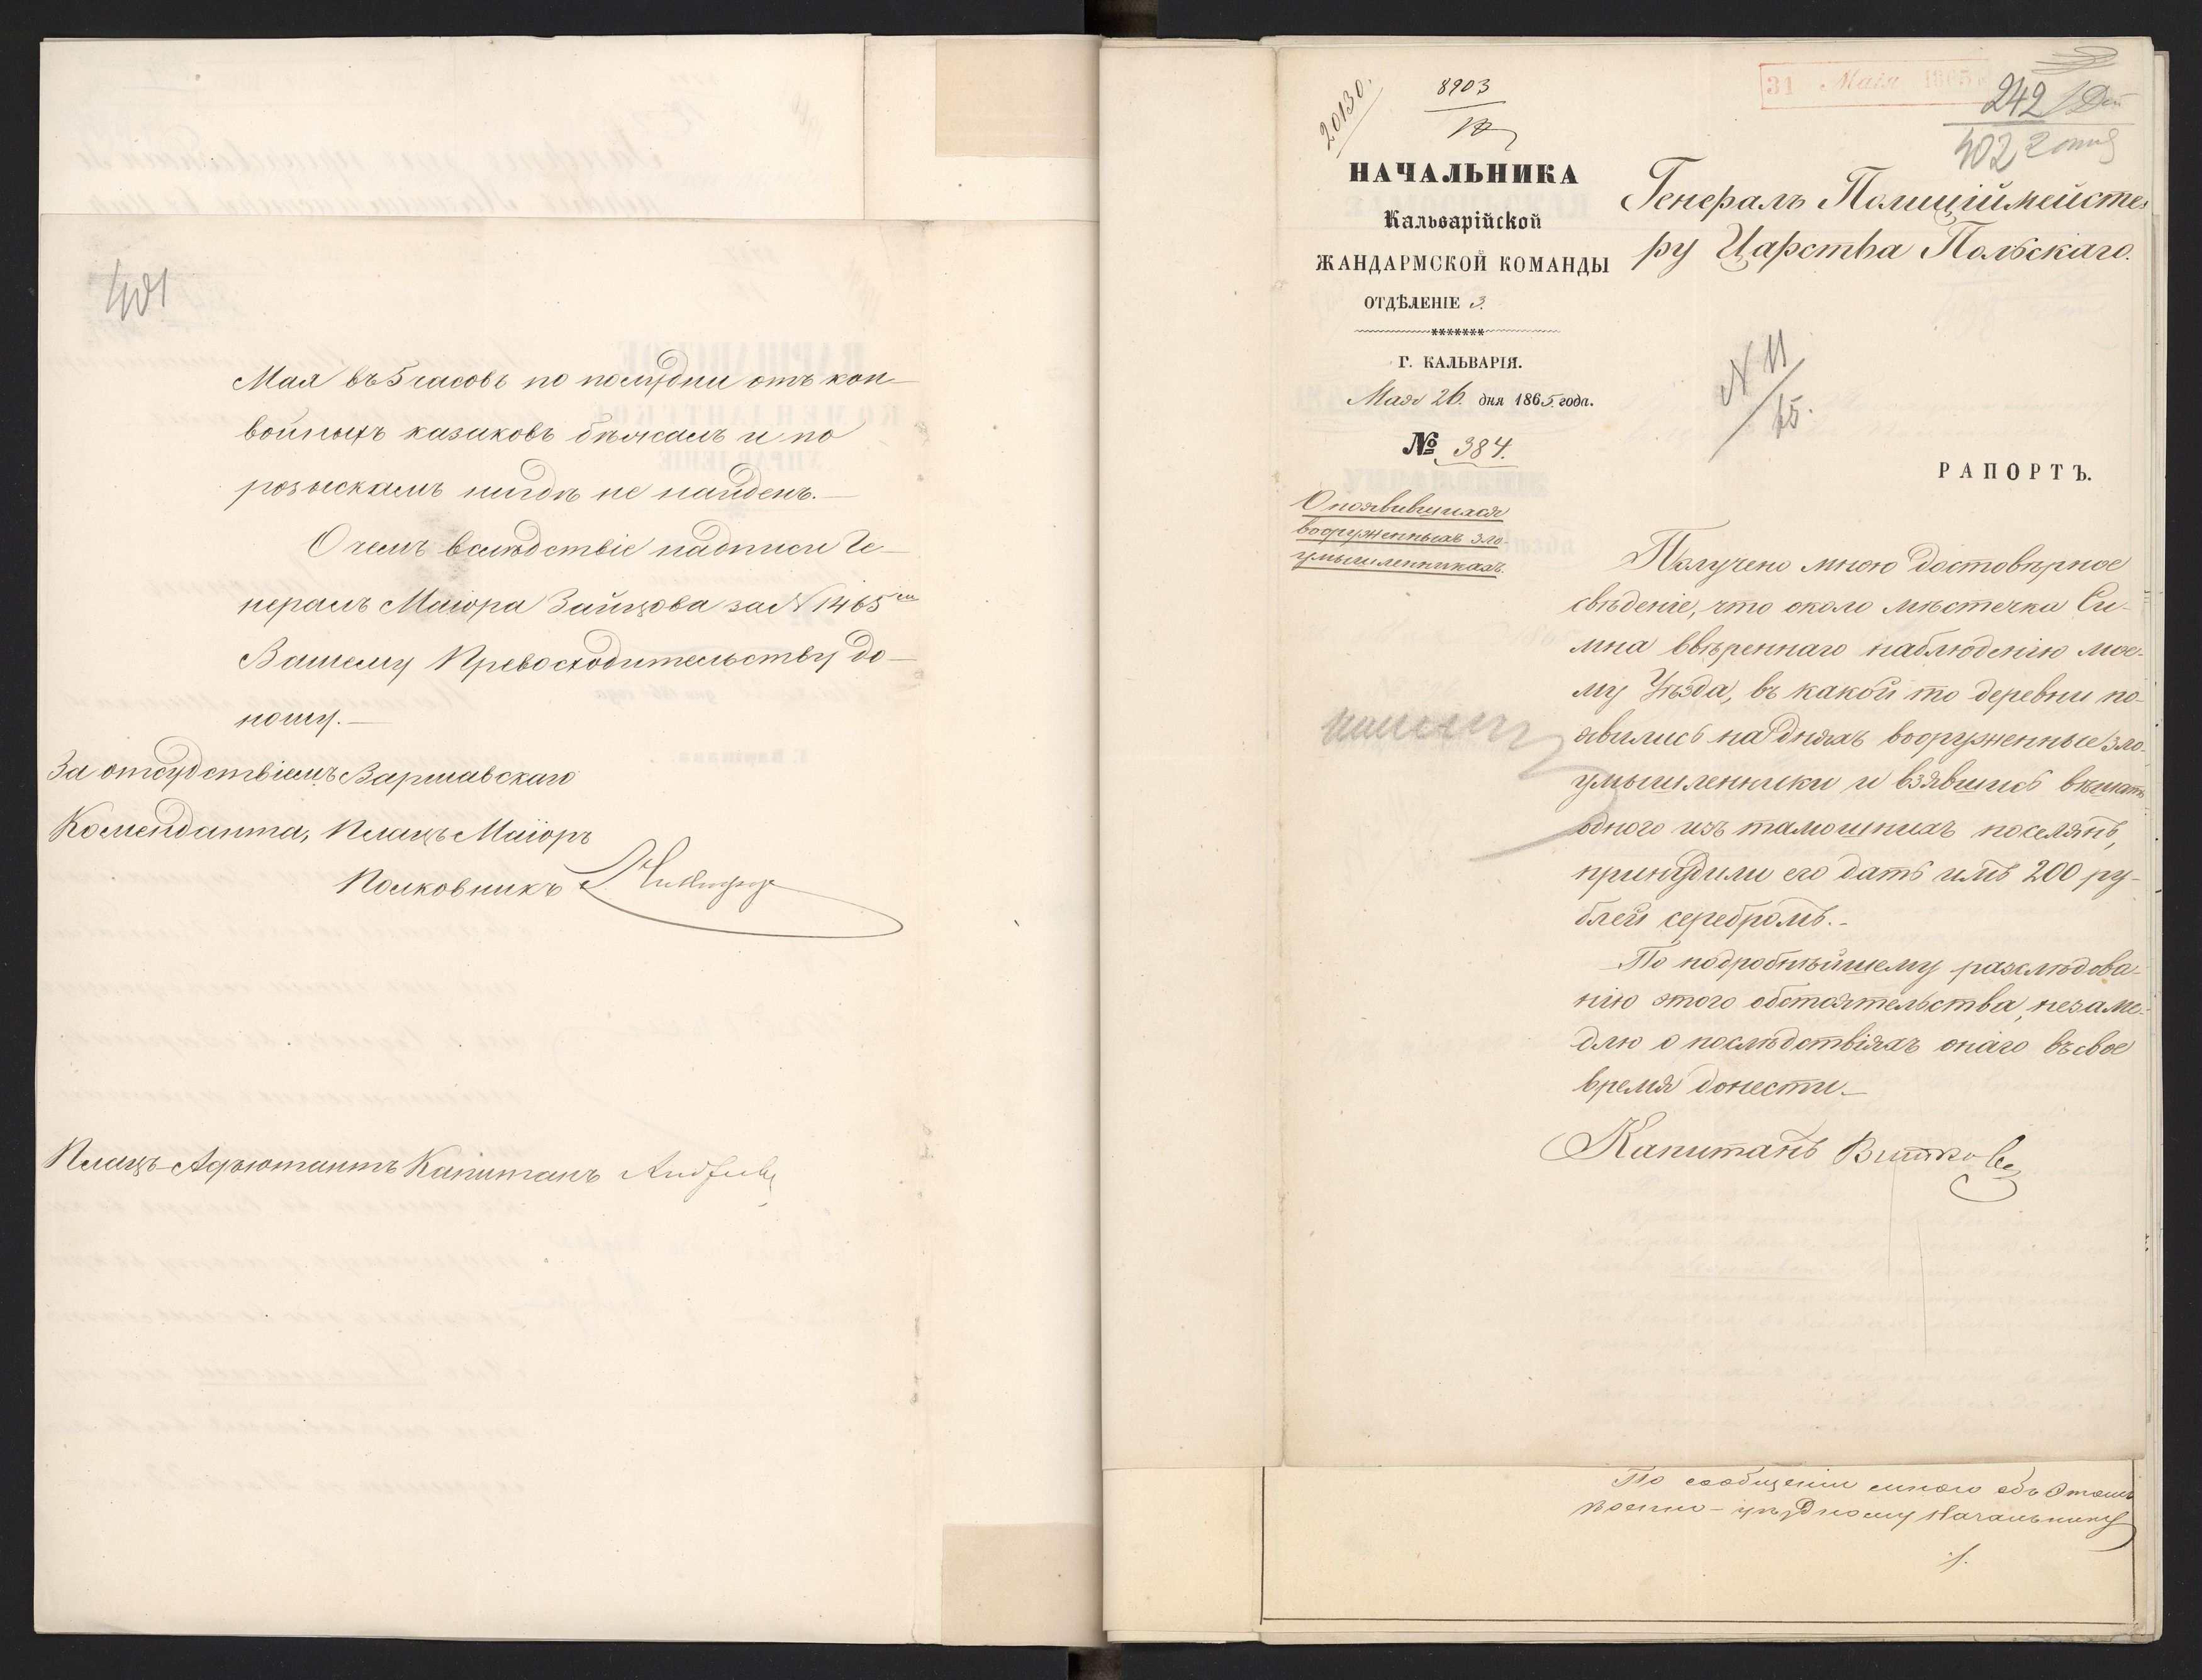 401
Мая въ 5 часовъ по полудни отъ кон-
войныхъ казаковъ бѣжалъ и по
розыскамъ нигдѣ не найденъ.—
О чемъ вслѣдствіе надписи Ге-
нералъ Маіора Зайцова за N 1465
Вашему Превосходительству до-
ношу.—
За отсудствіемъ Варшавскаго
Коменданта, Плацъ Маіоръ
Полковникъ
Плацъ-Адъютантъ Капитанъ
20130.
8903
31 Мая 1865
242
402
НАЧАЛЬНИКА
Кальварійской
ЖАНДАРМСКОЙ КОМАНДЫ
ОТДѢЛЕНІЕ 3.
Г. КАЛЬВАРІЯ.
Мая 26. дня 1865 года.
№ 384.
О появившихся
вооруженныхъ зло-
умышленникахъ.
Генералъ Полиціймейсте-
ру Царства Польскаго.
N 11
65.
РАПОРТЪ.
Получено мною достовѣрное
свѣденіе, что около мѣстечка Си-
мна ввѣреннаго наблюденію мое-
му Уѣзда, въ какой то деревни по-
явились на дняхъ вооруженные зло-
умышленники и взявшись вѣшать
одного изъ тамошнихъ поселянъ,
принудили его дать имъ 200 ру-
блей серебромъ.-
По подробнѣйшему разслѣдова-
нію этого обстоятельства, незаме-
длю о послѣдствіяхъ онаго въ свое
время донести.—
Капитанъ
По сообщеніи мною объ этомъ
Военно-уѣздному Начальнику